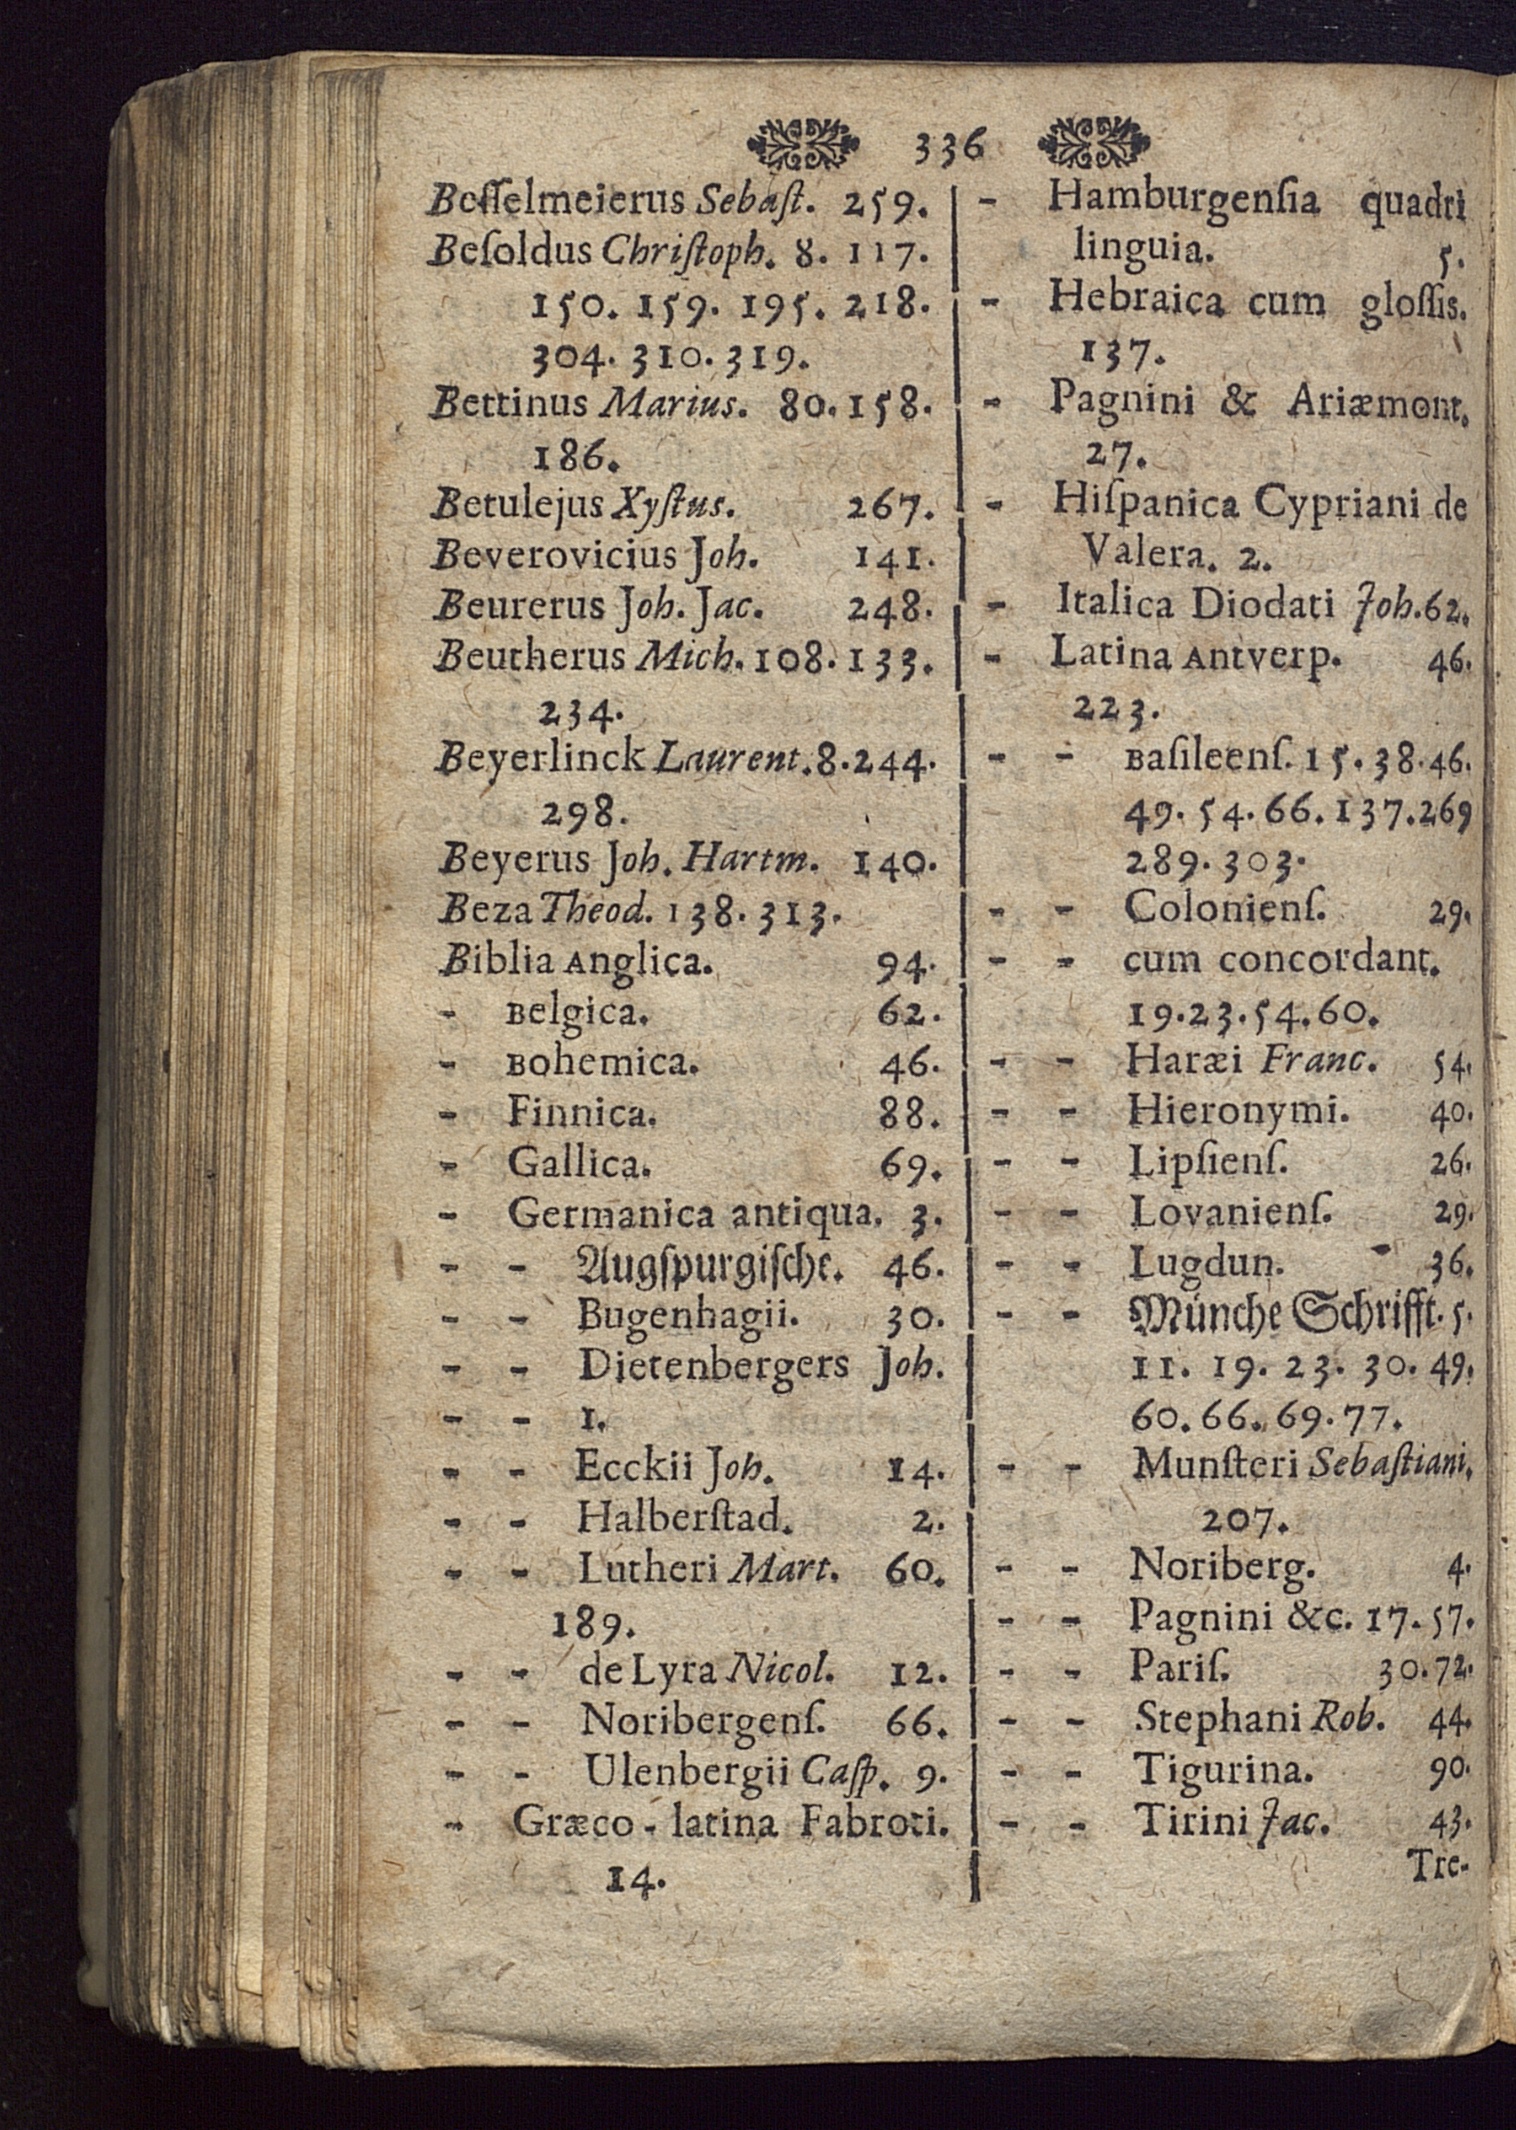 336
Beſſelmeierus Sebaſt. 259.
Beſoldus Chriſtoph. 8. 117.
150. 159. 195. 218.
304. 310. 319.
Bettinus Marius. 80. 158.
186.
Betulejus Xyſtus. 267.
Beverovicius Joh. 141.
Beurerus Joh. Jac. 248.
Beutherus Mich. 108. 133.
234.
Beyerlinck Laurent. 8. 244.
298.
Beyerus Joh. Hartm. 140.
Beza Theod. 138. 313.
Biblia Anglica. 94.
- Belgica. 62.
- Bohemica. 46.
- Finnica. 88.
- Gallica. 69.
- Germanica antiqua. 3.
- - Augſpurgiſche. 46.
- - Bugenhagii. 30.
- - Dietenbergers Joh.
- - 1.
- - Ecckii Joh. 14.
- - Halberſtad. 2.
- - Lutheri Mart. 60.
189.
- - de Lyra Nicol. 12.
- - Noribergenſ. 66.
- - Ulenbergii Caſp. 9.
- Græco-latina Fabroti.
14.
- Hamburgenſia quadri
linguia. 5.
- Hebraica cum gloſſis.
137.
- Pagnini & Ariæmont.
27.
- Hiſpanica Cypriani de
Valera. 2.
- Italica Diodati Joh. 62.
- Latina Antverp. 46.
223.
- - Baſileenſ. 15. 38. 46.
49. 54. 66. 137. 269
289. 303.
- - Colonienſ. 29.
- - cum concordant.
19. 23. 54. 60.
- - Haræi Franc. 54.
- - Hieronymi. 40.
- - Lipſienſ. 26.
- - Lovanienſ. 29.
- - Lugdun. 36.
- - Münche Schrifft. 5.
11. 19. 23. 30. 49.
60. 66. 69. 77.
- - Munſteri Sebaſtiani.
207.
- - Noriberg. 4.
- - Pagnini &c. 17. 57.
- - Pariſ. 30. 72.
- - Stephani Rob. 44.
- - Tigurina. 90.
- - Tirini Jac. 43.
Tre-